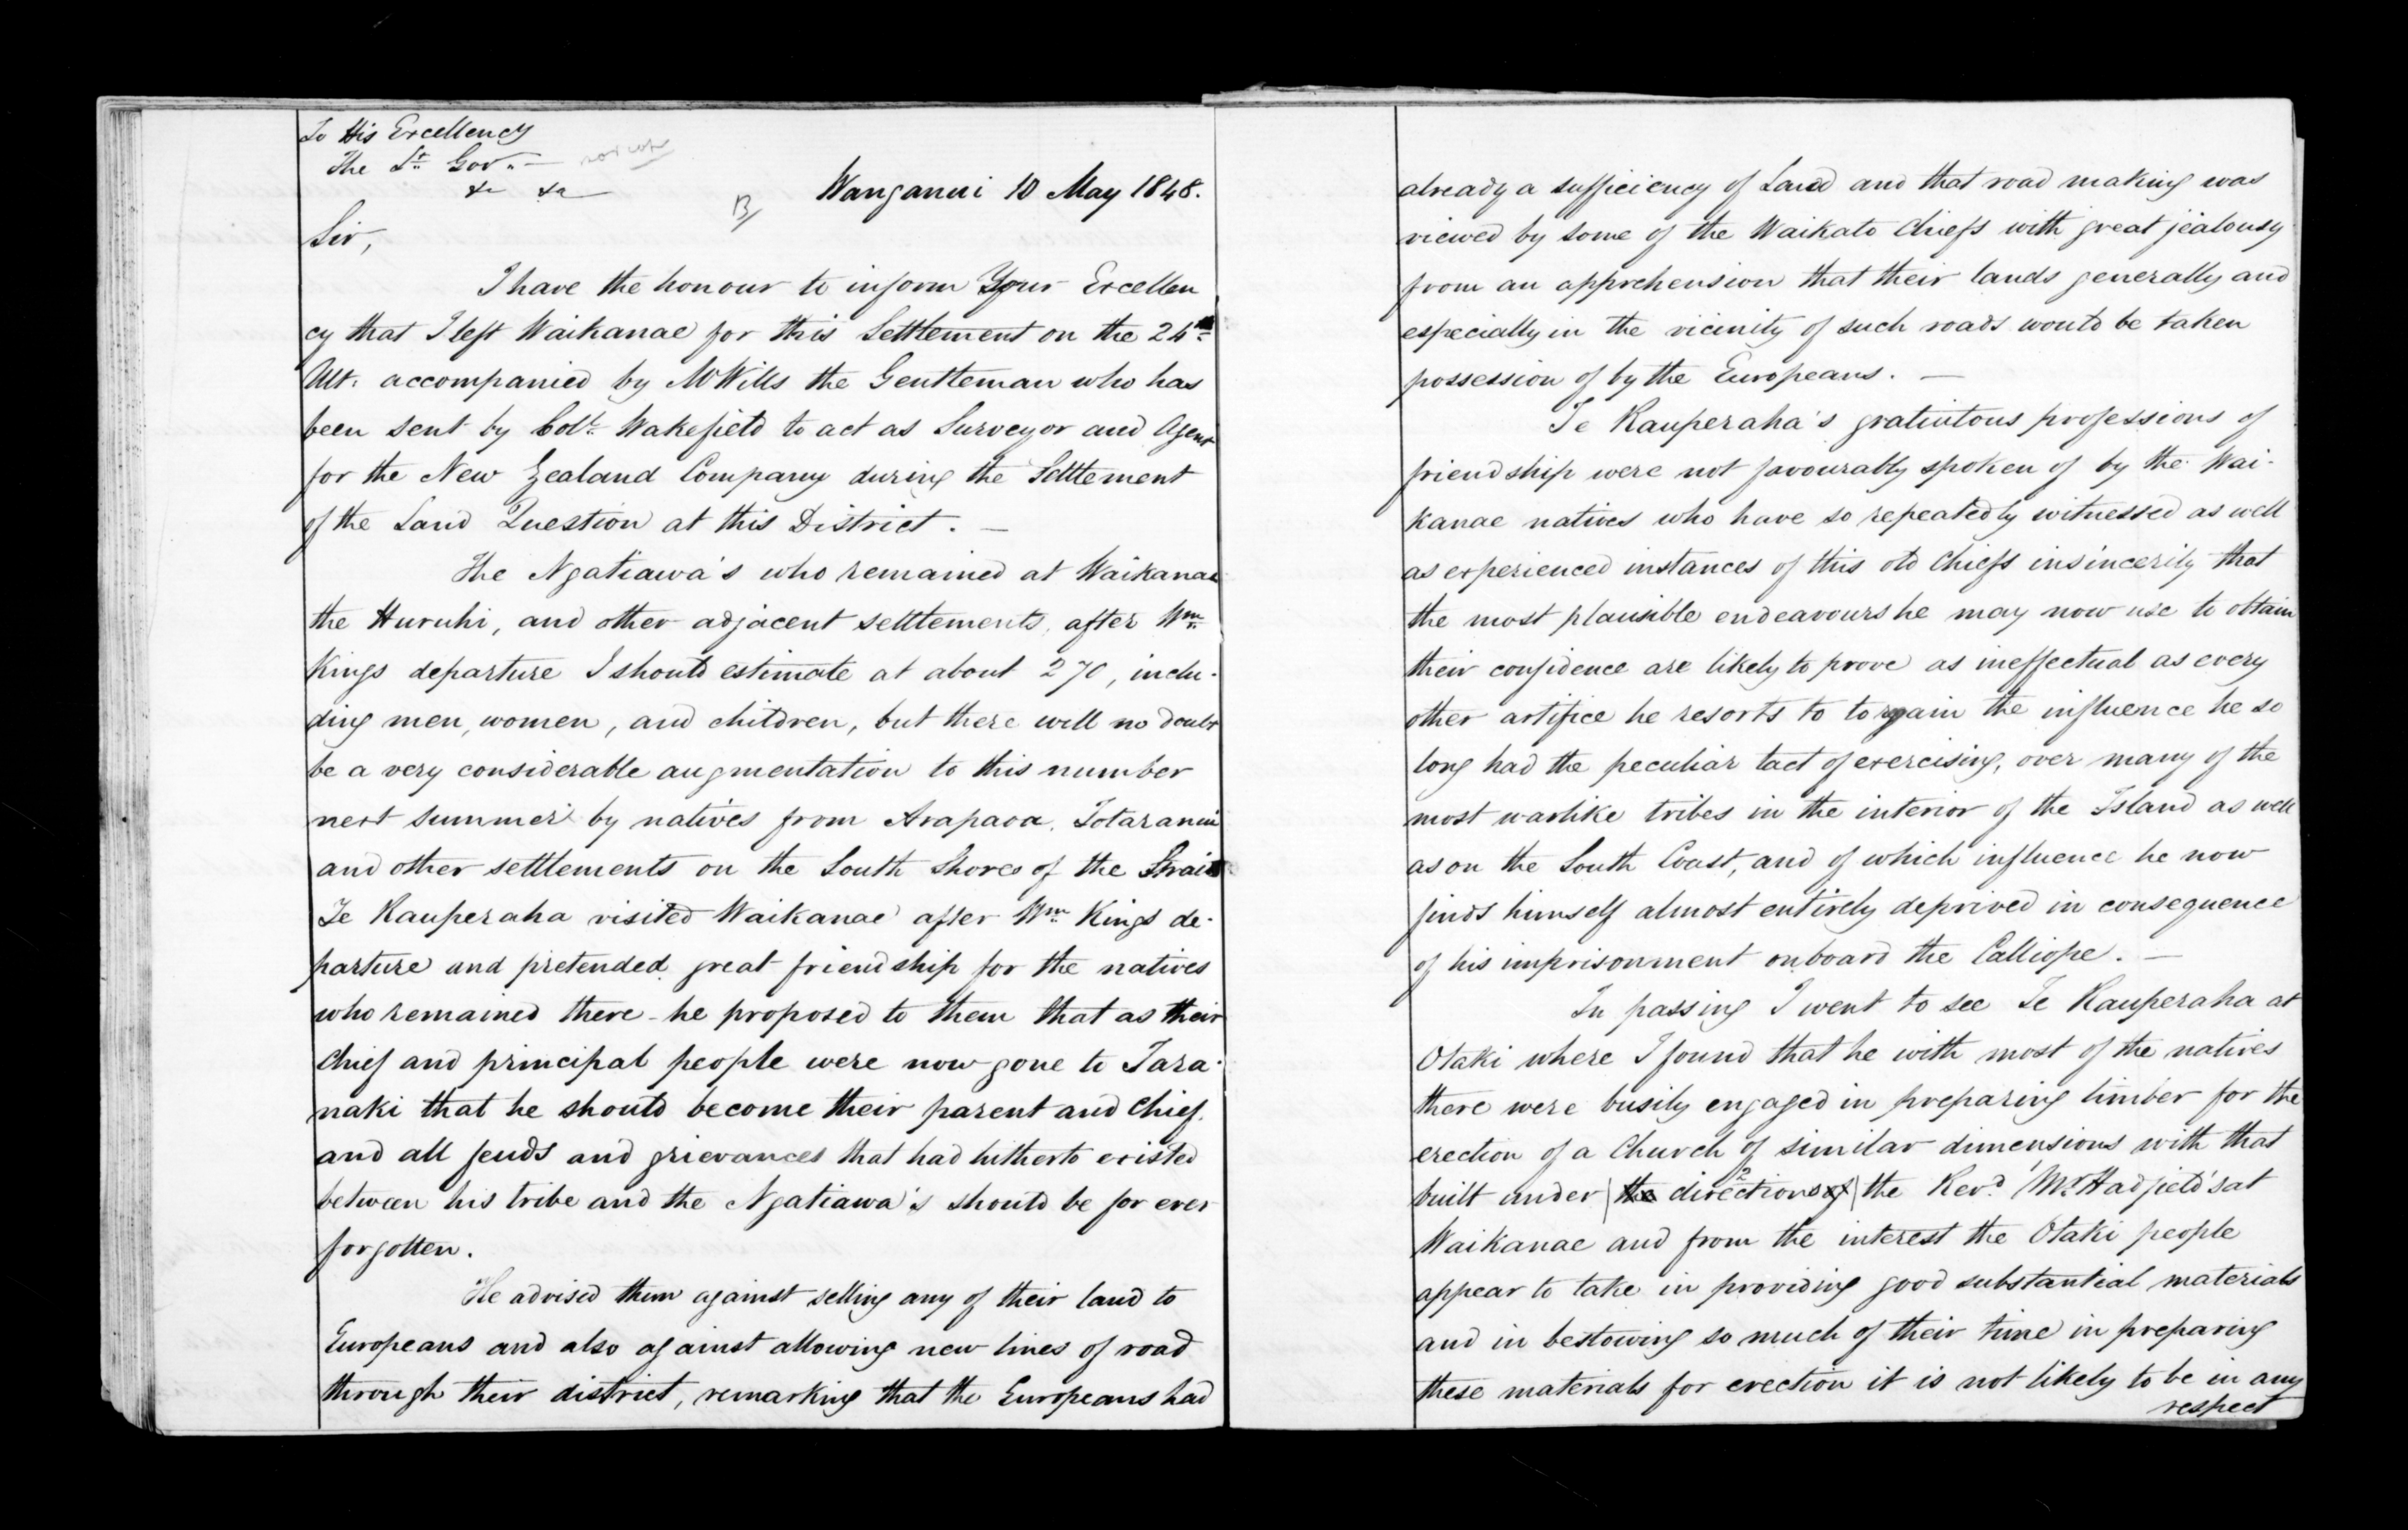 To His Excellency
The Lt. Gov.
&c &c
B/
Wanganui 10 May 1848.
Sir,
I have the honour to inform Your Excellen
cy that I left Waikanae for this Settlement on the 24th
Ult. accompanied by Mr Wills the Gentleman who has
been sent by Coll. Wakefield to act as Surveyor and Agent
for the New Zealand Company during the Settlement
of the Land Question at this District. —
The Ngatiawa's who remained at Waikanae
the Huruhi, and other adjacent settlements, after Wm.
Kings departure I should estimate at about 270, inclu-
ding men, women, and children, but there will no doubt
be a very considerable augmentation to this number
next summer by natives from Arapaoa, Totaranui
and other settlements on the South Shores of the Strait
Te Rauperaha visited Waikanae after Wm. Kings de-
parture and pretended great friendship for the natives
who remained there - he proposed to them that as their
Chief and principal people were now gone to Tara-
naki that he should become their parent and Chief.
and all feuds and grievances that had hitherto existed
between his tribe and the Ngatiawa's should be for ever
forgotten.
He advised them against selling any of their land to
Europeans and also against allowing new lines of road
through their district, remarking that the Europeans had
already a sufficiency of Land and that road making was
viewed by some of the Waikato Chiefs with great jealousy
from an apprehension that their lands generally and
especially in the vicinity of such roads would be taken
possession of by the Europeans. —
Te Rauperaha's gratiutous professions of
friendship were not favourably spoken of by the Wai-
kanae natives who have so repeatedly witnessed as well
as experienced instances of this old Chiefs insincerity that
the most plausible endeavours he may now use to obtain
their confidence are likely to prove as ineffectual as every
other artifice he resorts to to regain the influence he so
long had the peculiar tact of exercising, over many of the
most warlike tribes in the interior of the Island as well
as on the South Coast, and of which influence he now
finds himself almost entirely deprived in consequence
of his imprisonment onboard the Calliope. —
In passing I went to see Te Rauperaha at
Otaki where I found that he with most of the natives
there were busily engaged in preparing timber for the
erection of a Church of similar dimensions with that
built under the directions of the Revd. Mr Hadfield's at
Waikanae and from the interest the Otaki people
appear to take in providing good substantial materials
and in bestowing so much of their time in preparing
these materials for erection it is not likely to be in any
respect